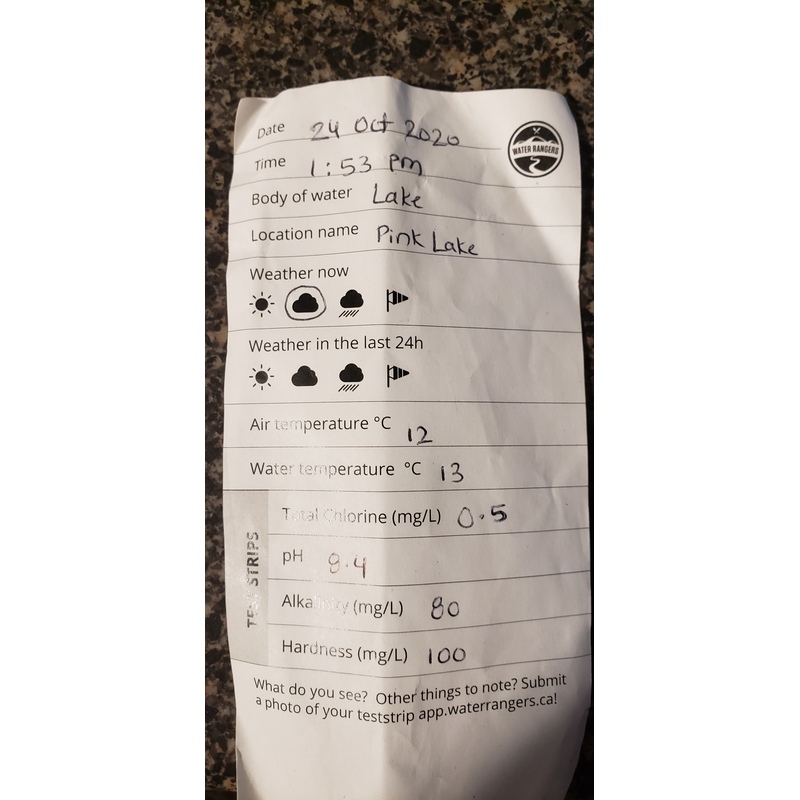 Date 24 Oct 2020
WATER RANGERS
Time 1:53 pm
Body of water Lake
Location name Pink Lake
Weather now
Weather in the last 24h
Air temperature °C 12
Water temperature °C 13
TEST STRIPS
Total Chlorine (mg/L) 0.5
pH 8.4
Alkalinity (mg/L) 80
Hardness (mg/L) 100
What do you see? Other things to note? Submit
a photo of your teststrip app.waterrangers.ca!